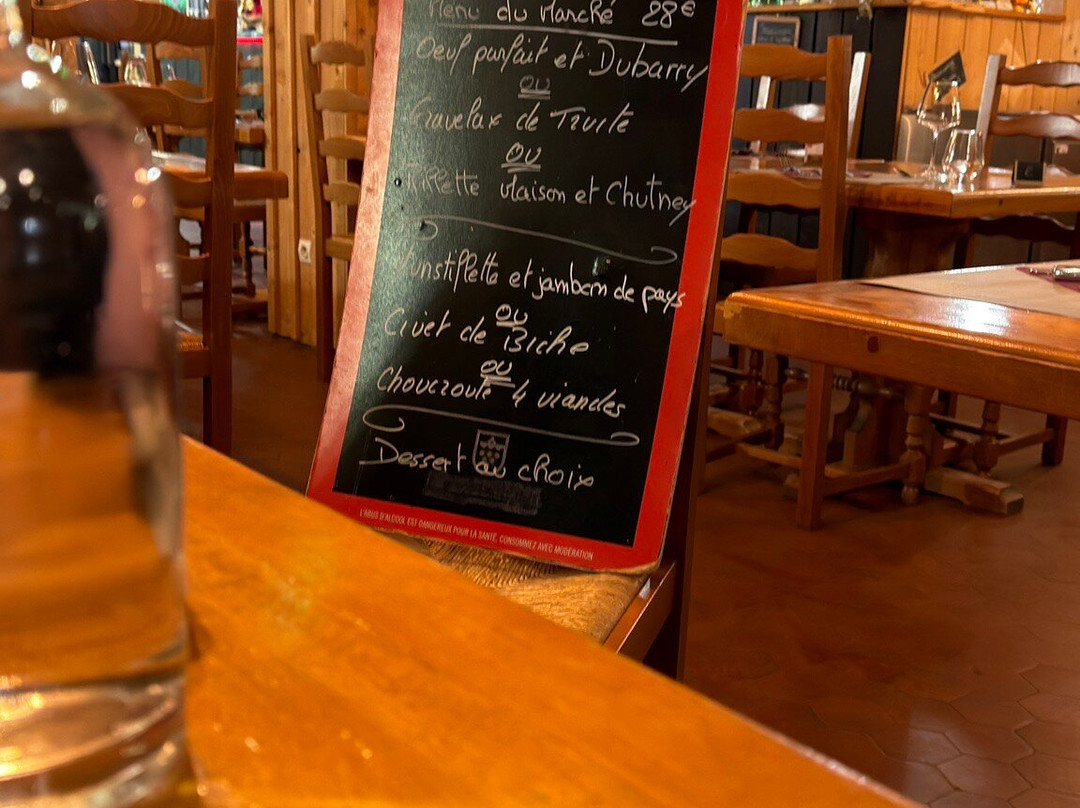 Menu du Marché 28€
Oeuf parfait et Dubarry
ou
Gravelax de Truite
ou
Rillette Maison et Chutney
Munstiflette et jambon de pays
ou
Civet de Biche
ou
Choucroute 4 viandes
Dessert au choix
L'ABUS D'ALCOOL EST DANGEREUX POUR LA SANTÉ, CONSOMMEZ AVEC MODÉRATION